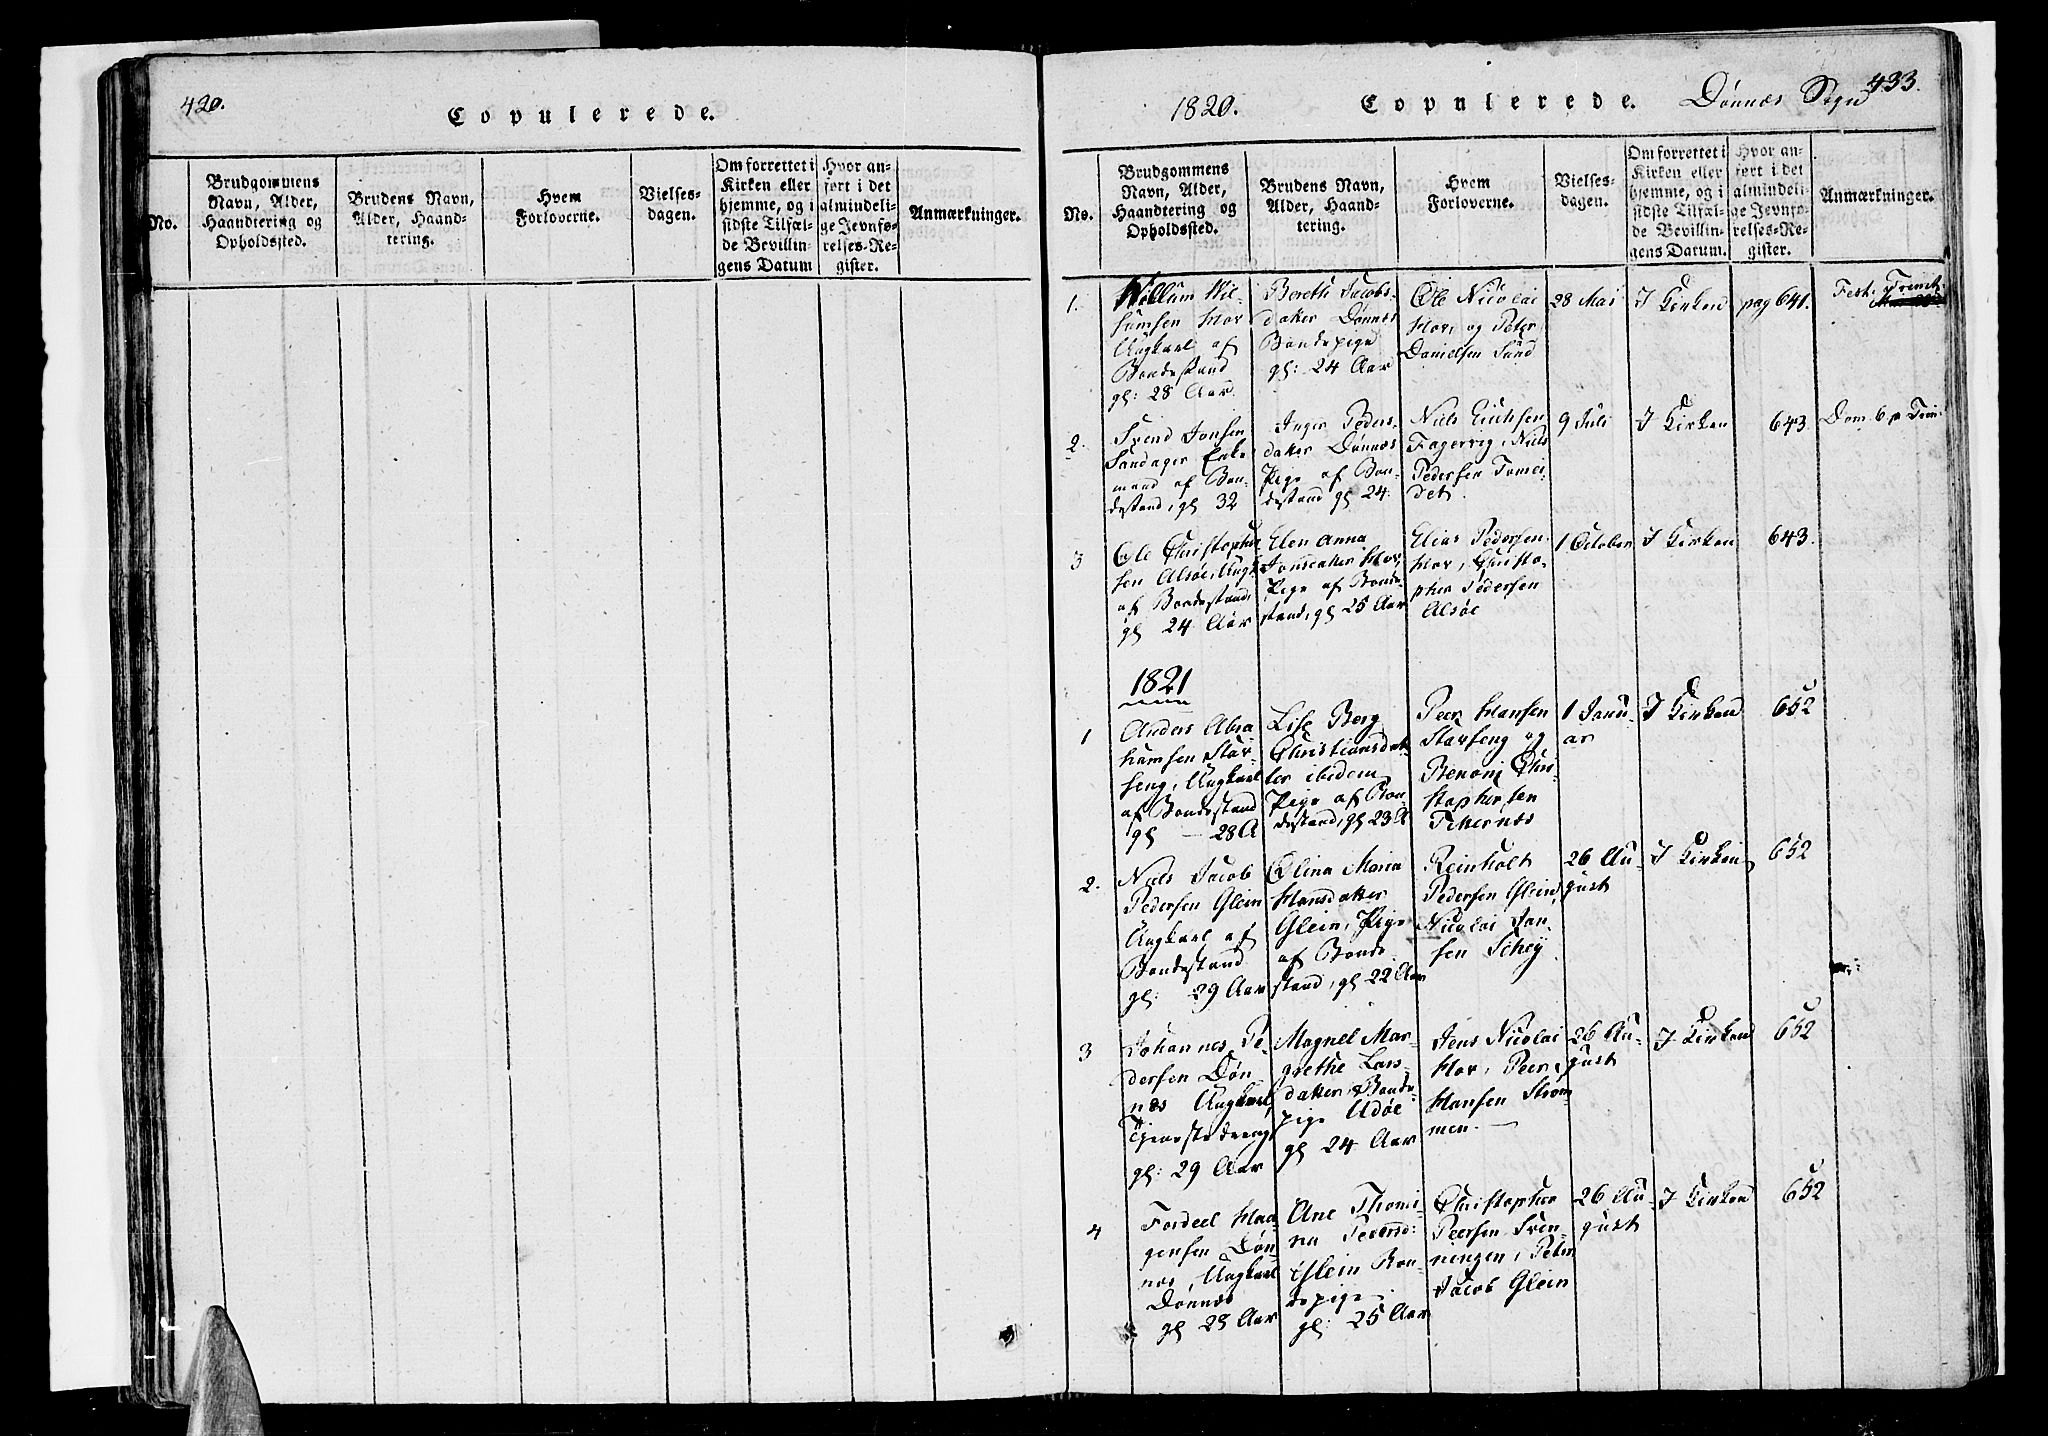 420.
Copulerede.
No.
Brudgommens
Navn, Alder,
Haandtering og
Opholdssted.
Brudens Navn,
Alder, Haand-
tering.
Hvem
Forloverne.
Vielses-
dagen.
Om forrettet i
Kirken eller
hjemme, og i
sidste Tilfæl-
de Bevillin-
gens Datum
Hvor an-
ført i det
almindeli-
ge Jevnfø-
relses-Re-
gister.
Anmærkninger.
1820.
Copulerede.
Dönnæs Sogn
433.
No.
Brudgommens
Navn, Alder,
Haandtering og
Opholdssted.
Brudens Navn,
Alder, Haand-
tering.
Hvem
Forloverne.
Vielses-
dagen.
Om forrettet i
Kirken eller
hjemme, og i
sidste Tilfæl-
de Bevillin-
gens Datum.
Hvor an-
ført i det
almindeli-
ge Jevnfø-
relses-Re-
gister.
Anmærkninger.
1.
Willum Wil-
humsen Hov
Ungkarl af
Bondestand
gl: 28 Aar.
Bereth Jacobs-
datter Dönnes
Bondepige
gl: 24 Aar
Ole Nicolai
Hov, og Peter
Danielsen Sund
28 Mai
I Kirken
pag 641.
Fest. Trinit.
2.
Svend Jonsen
Sandager Enke
mand af Bon-
destand, gl 32
Inger Peders-
datter Dönnæs
Pige af Bon-
destand gl 24.
Niels Erichsen
Fagervig, Niels
Pedersen Tomei-
det.
9 Juli
I Kirken
643.
Dom. 6 p Trin.
3
Ole Christopher
sen Alsøe, Ungk
af Bondestand
gl 24 Aar
Elen Anna
Jonsdatter Hov,
Pige af Bonde
stand, gl 25 Aar
Elias Pedersen
Hov, Christo-
pher Pedersen
Alsøe
1 October
I Kirken
643.
1821
1
Anders Abra
hamsen Stav-
seng, Ungkarl
af Bondestand
gl — 28 A
Lise Berg
Christiansdat-
ter ibidem
Pige af Bon-
destand, gl 23 A
Peer Hansen
Stavseng og
Benoni Chri-
stophersen
Titternæs
1 Janu-
ar
I Kirken
652
2.
Niels Jacob
Pedersen Glein
Ungkarl af
Bondestand
gl: 29 Aar
Olina Maria
Hansdatter
Glein, Pige
af Bonde-
stand, gl 22 Aar
Reinholt
Pedersen Glein,
Nicolai Jan-
sen Schey
26 Au-
gust
I Kirken
652
3
Johannes Pe-
dersen Dön
nes Ungkarl,
Tjenestedreng
gl: 29 Aar
Magnel Mar-
grethe Lars-
datter, Bonde
pige Udøe
gl 24 Aar
Jens Nicolai
Hov, Peer
Hansen Strom
men. —
26 Au-
gust
I Kirken
652
4
Fordeel Haa-
gensen Dön-
næs, Ungkarl
Dönnæs
gl 28 Aar
Ane Thomi-
na Pedersd:
Glein Bon-
depige
gl: 25 Aar
Christopher
Peersen Sven-
ningen, Peter
Jacob Glein
26 Au-
gust
I Kirken
652